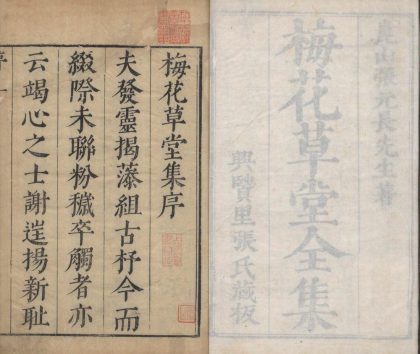 崑山張元長先生著
梅花草堂全集
興賢里張氏藏板
梅花草堂集序
夫發靈揭藻組古杼今而
綴際未聯粉穢卒觸者亦
云竭心之士謝揚新耻